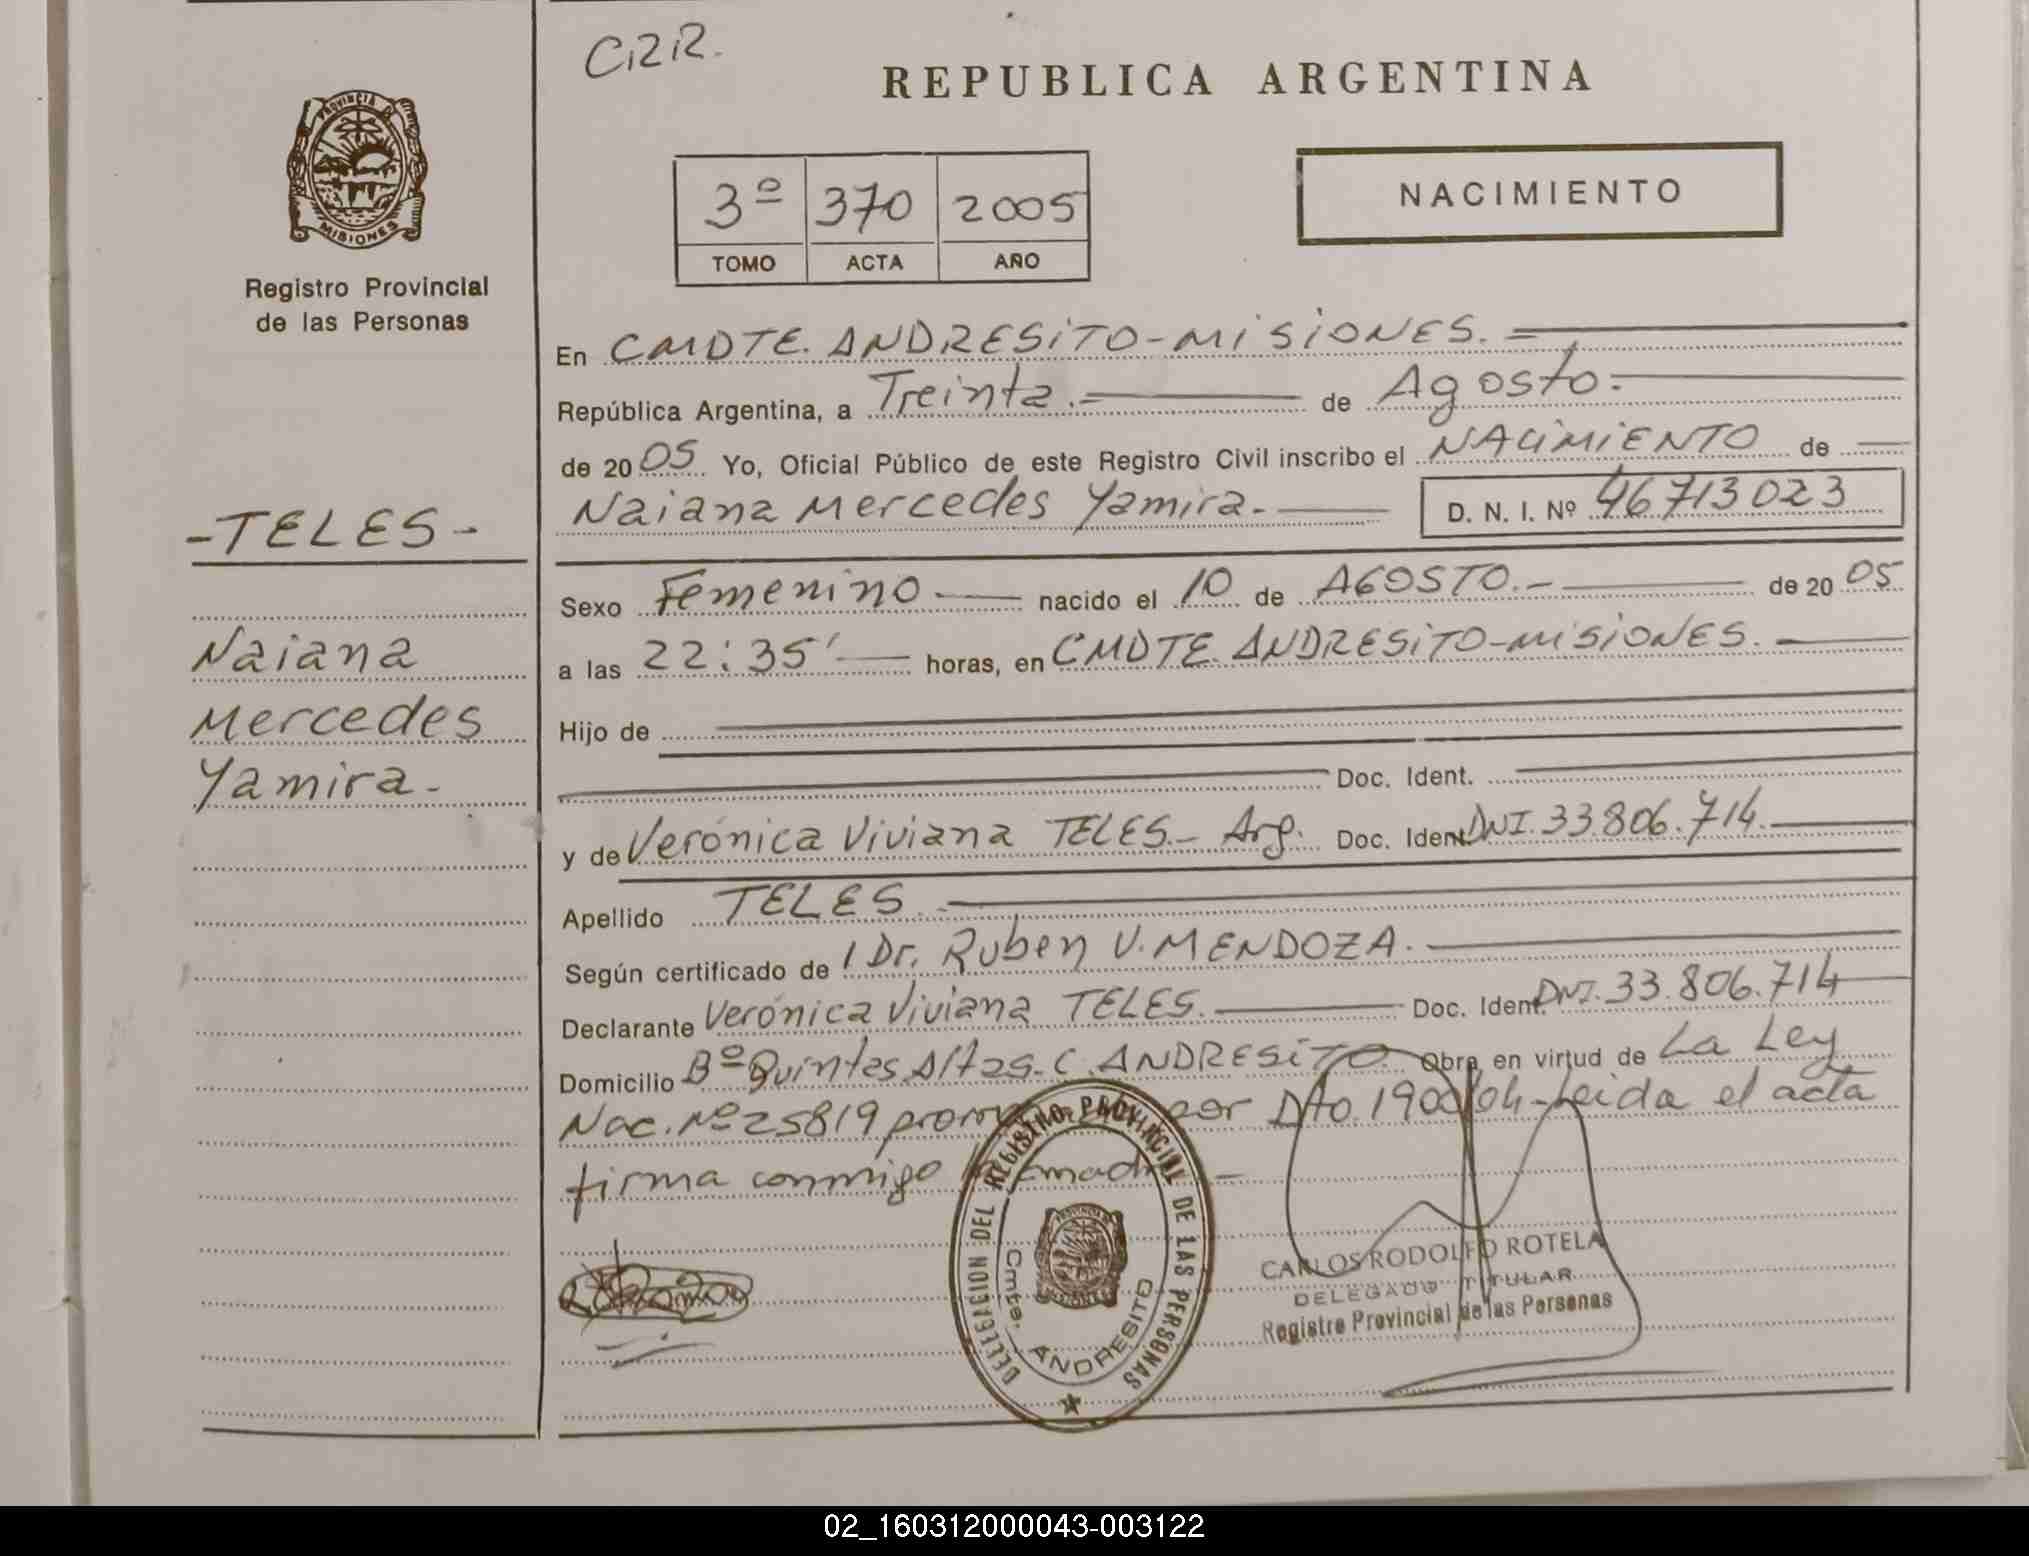 CRR.
REPUBLICA ARGENTINA
PROVINCIA DE
MISIONES
Registro Provincial
de las Personas
3º 370 2005
TOMO ACTA AÑO
NACIMIENTO
En CMDTE. ANDRESITO-MISIONES.
República Argentina, a Treinta. de Agosto.
de 2005 Yo, Oficial Público de este Registro Civil inscribo el NACIMIENTO de
Naiana Mercedes Yamira. D. N. I. Nº 46713023
-TELES-
Naiana
Mercedes
Yamira.
Sexo Femenino nacido el 10 de AGOSTO. de 2005
a las 22:35' horas, en CMDTE. ANDRESITO-MISIONES.
Hijo de
Doc. Ident.
y de Verónica Viviana TELES.- Arg. Doc. Ident. DNI. 33.806.714.
Apellido TELES.
Según certificado de / Dr. Ruben V. MENDOZA.
Declarante Verónica Viviana TELES. Doc. Ident. DNI. 33.806.714
Domicilio Bº Quintas Altas-C. ANDRESITO. Obra en virtud de La Ley
Nac. Nº 25819 por Dto. 1900/04-Leida el acta
firma conmigo madre
DELEGACION DEL REGISTRO PROVINCIAL DE LAS PERSONAS
Cmte. ANDRESITO
CARLOS RODOLFO ROTELA
DELEGADO TITULAR
Registro Provincial de las Personas
02_160312000043-003122